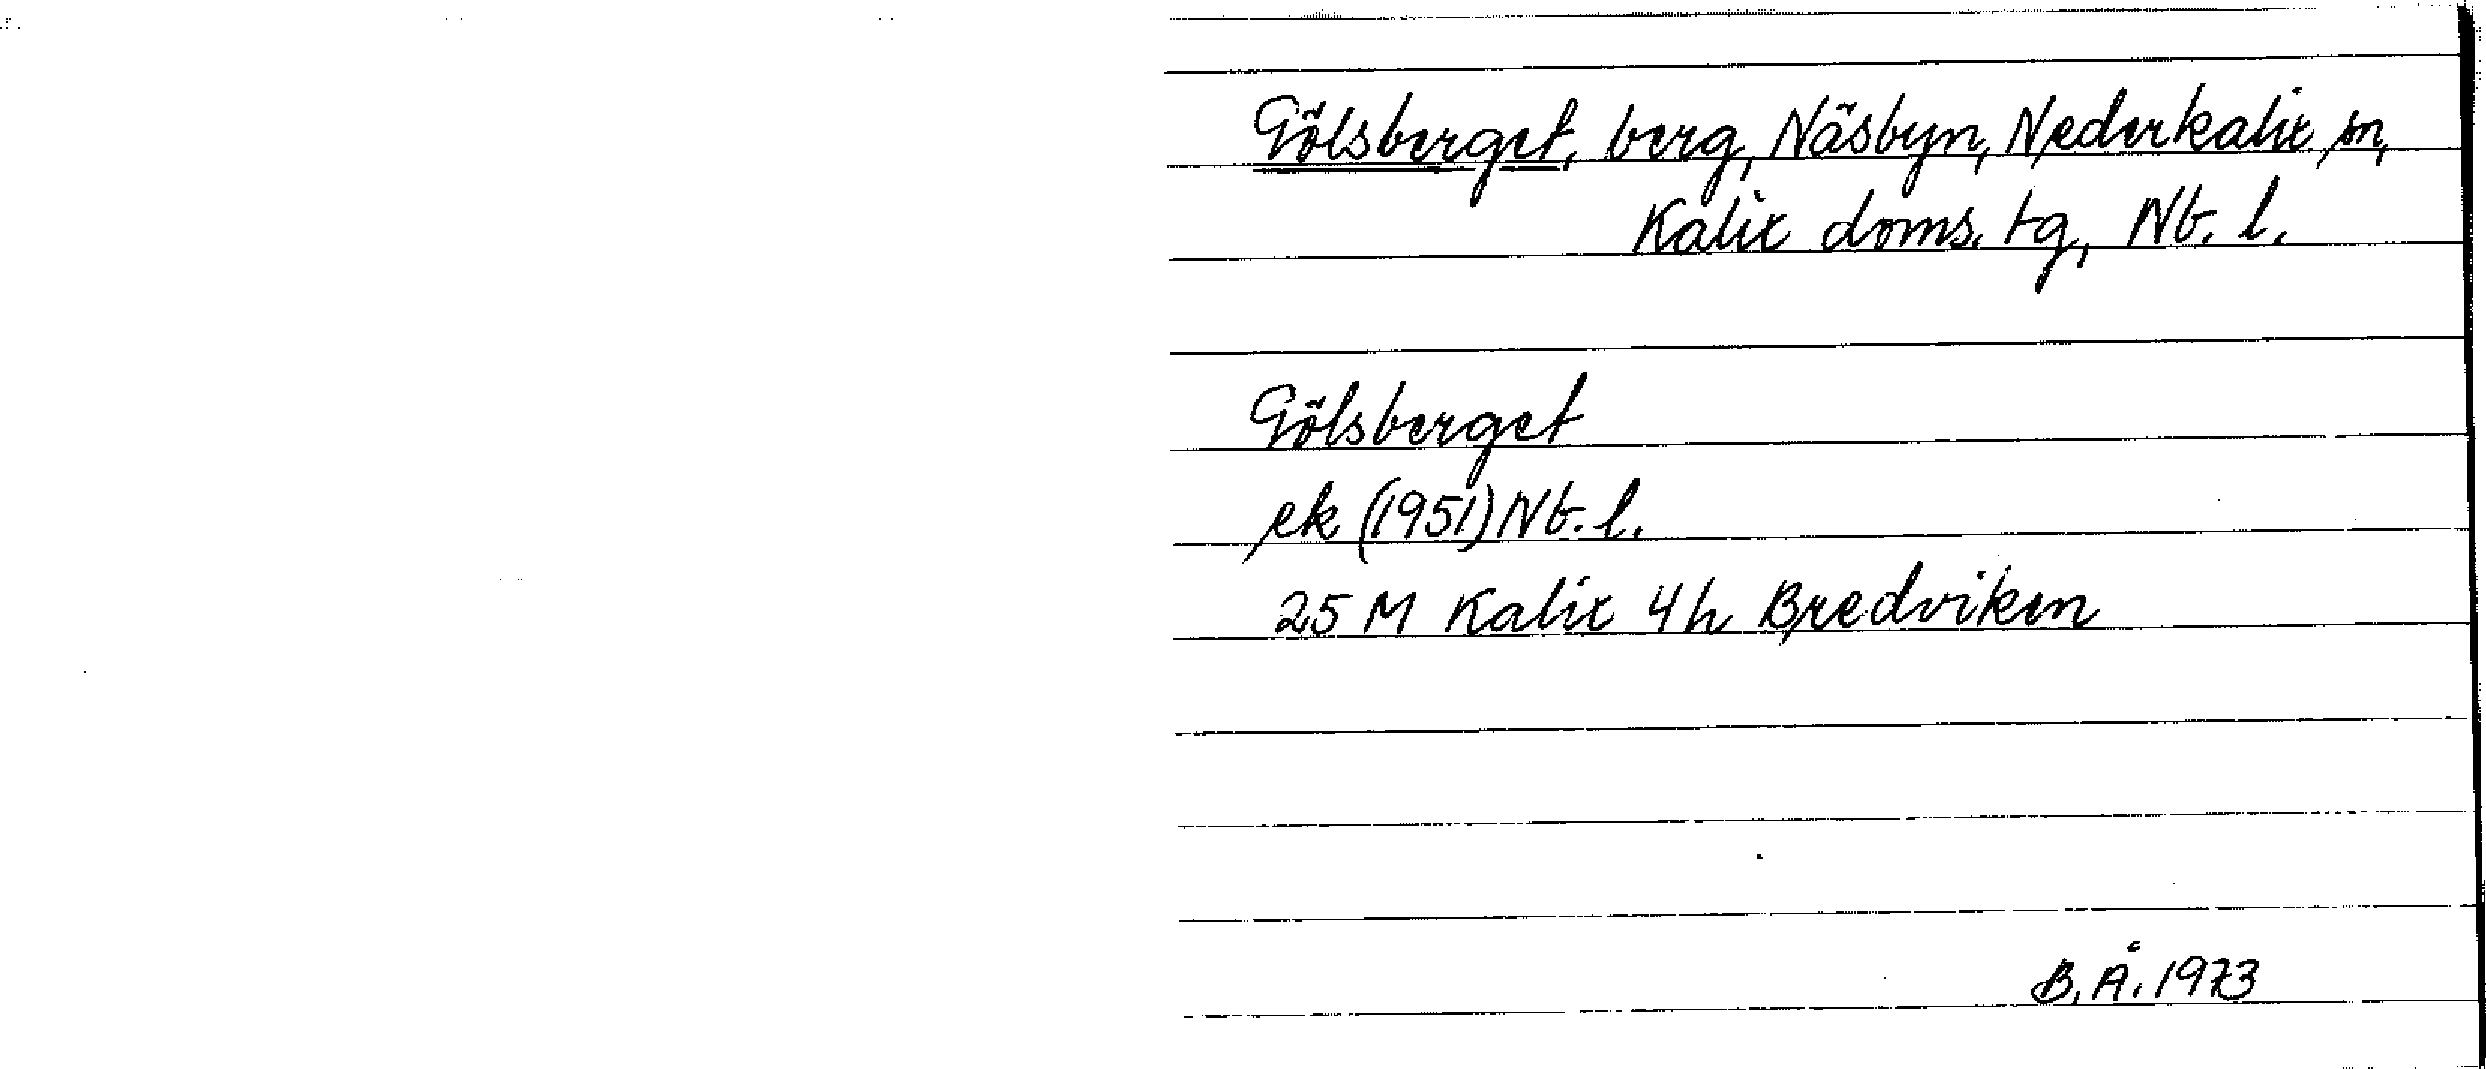 Gölsberget, berg, Näsbyn, Nederkalix sn,
Kalix doms. tg, Nb. l.
Gölsberget
ek (1951) Nb. l.
25 M Kalix 4 h Bredviken
B. Å. 1973